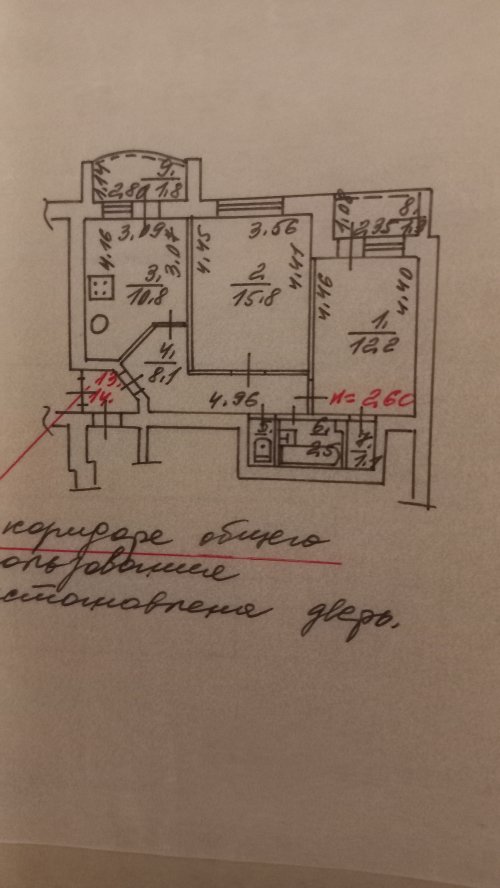 1.14
9.
2.80 1.8
1.08
8.
2.35 1.9
4.16
3.09
3.07
4.45
3.56
4.41
3.
10.8
2.
15.8
4.46
4.40
1.
12.2
4.
8.1
13.
14.
4.96
h=2.60
5.
6.
2.5
7.
1.1
коридоре общего
ользования
становлена дверь.